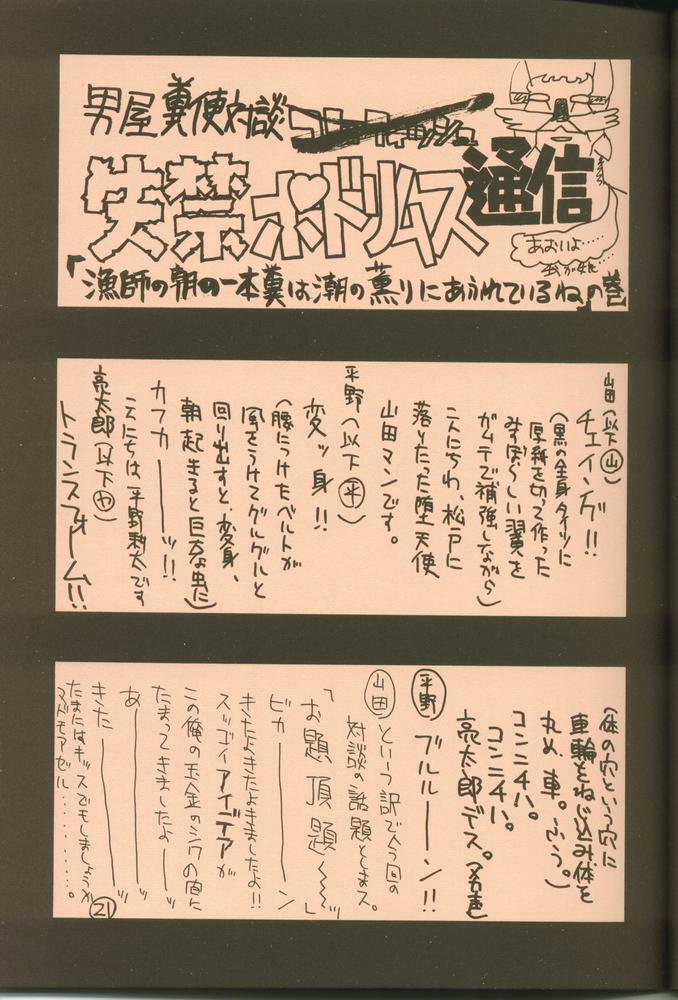 男屋糞便対談
失禁ボドリムス通信
あおいよ……
我が娘…
「漁師の朝の一本糞は潮の薫りにあふれているね」の巻
山田(以下㊤山)
チェイング!!
(黒の全身タイツに
厚紙を切って作った
みすぼらしい翼を
ガムテで補強しながら)
こんにちわ、松戸に
落りたった堕天使
山田マンです。
平野(以下平)
変ッ身!!
(腰につけたベルトが
風をうけてグルグルと
回り出すと、変身、
朝起きると巨大な虫に)
カフカーーーッ!!
こんにちは、平野耕太です
亮太郎(以下や)
トランスフォーム!!
(体の穴という穴に
車輪をねじ込み体を
丸め、車。ふう。)
コンニチハ。
コンニチハ。
亮太郎デス。(名声)
平野 ブルルーーン!!
山田 という訳で今回の
対談の話題としまス。
「お題頂題〜〜〜」
ビカーーーーン
きたよきたよきましたよ!!
スッゴイアイデアが
この俺の玉金のシワの間に
たまってきましたよーーッ
あーーーーーッ
きたーーーーーッ
たまにはキッスでもしましょうか
マドモアゼル………。
21